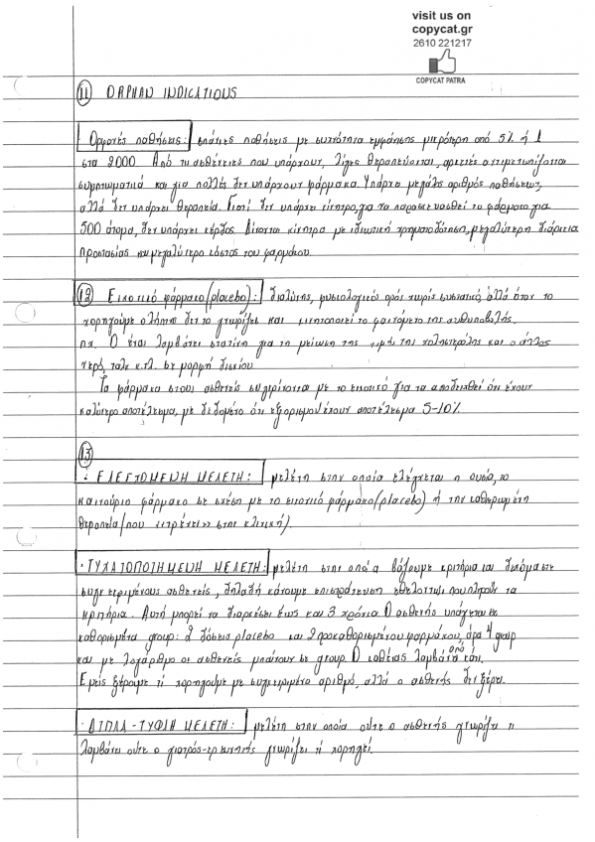 visit us on
copycat.gr
2610 221217
COPYCAT PATRA
11 ORPHAN INDICATIONS
Ορφανές παθήσεις: σπάνιες παθήσεις με συχνότητα εμφάνισης μικρότερη από 5% ή 1
στα 2000. Από τις ασθένειες που υπάρχουν, λίγες θεραπεύονται, αρκετές αντιμετωπίζονται
συμπτωματικά και για πολλές δεν υπάρχουν φάρμακα. Υπάρχει μεγάλος αριθμός παθήσεων,
αλλά δεν υπάρχει θεραπεία. Γιατί δεν υπάρχει κίνητρο, για να παρασκευασθεί το φάρμακο για
500 άτομα, δεν υπάρχει κέρδος. Δίνονται κίνητρα με ιδιωτική χρηματοδότηση, μεγαλύτερη διάρκεια
προστασίας και μεγαλύτερο κόστος του φαρμάκου.
12 Εικονικό φάρμακο (placebo): διαλύτης, φυσιολογικός ορός χωρίς συστατικό αλλά όταν το
χορηγούμε ο λήπτης δεν το γνωρίζει και κινητοποιεί το φαινόμενο της αυθυποβολής.
πχ. Ο ένας λαμβάνει στατίνη για τη μείωση της τιμής της χοληστερόλης και ο άλλος
νερό, ταλκ κ.τ.λ. σε μορφή δισκίου.
Τα φάρμακα στους ασθενείς συγκρίνονται με το εικονικό για να αποδειχθεί ότι έχουν
καλύτερο αποτέλεσμα, με δεδομένο ότι εξ ορισμού έχουν αποτέλεσμα 5-10%.
13
· ΕΛΕΓΧΟΜΕΝΗ ΜΕΛΕΤΗ: μελέτη στην οποία ελέγχεται η ουσία, το
καινούριο φάρμακο σε σχέση με το εικονικό φάρμακο (placebo) ή την καθιερωμένη
θεραπεία (που επιτρέπεται στην κλινική).
· ΤΥΧΑΙΟΠΟΙΗΜΕΝΗ ΜΕΛΕΤΗ: μελέτη στην οποία βάζουμε κριτήρια και δοκιμάζεται σε
συγκεκριμένους ασθενείς, δηλαδή κάνουμε επιστράτευση εθελοντών που πληρούν τα
κριτήρια. Αυτή μπορεί να διαρκέσει έως και 3 χρόνια. Ο ασθενής υπάγεται σε
καθορισμένα group: 2 δόσεις placebo και 2 προκαθορισμένου φαρμάκου, άρα 4 group
και με λογάριθμο οι ασθενείς μπαίνουν σε group. Ο καθένας λαμβάνει από κάτι.
Εμείς ξέρουμε τί χορηγούμε με συγκεκριμένο αριθμό, αλλά ο ασθενής δεν ξέρει.
· ΔΙΠΛΑ-ΤΥΦΛΗ ΜΕΛΕΤΗ: μελέτη στην οποία ούτε ο ασθενής γνωρίζει τι
λαμβάνει ούτε ο γιατρός-ερευνητής γνωρίζει τί χορηγεί.